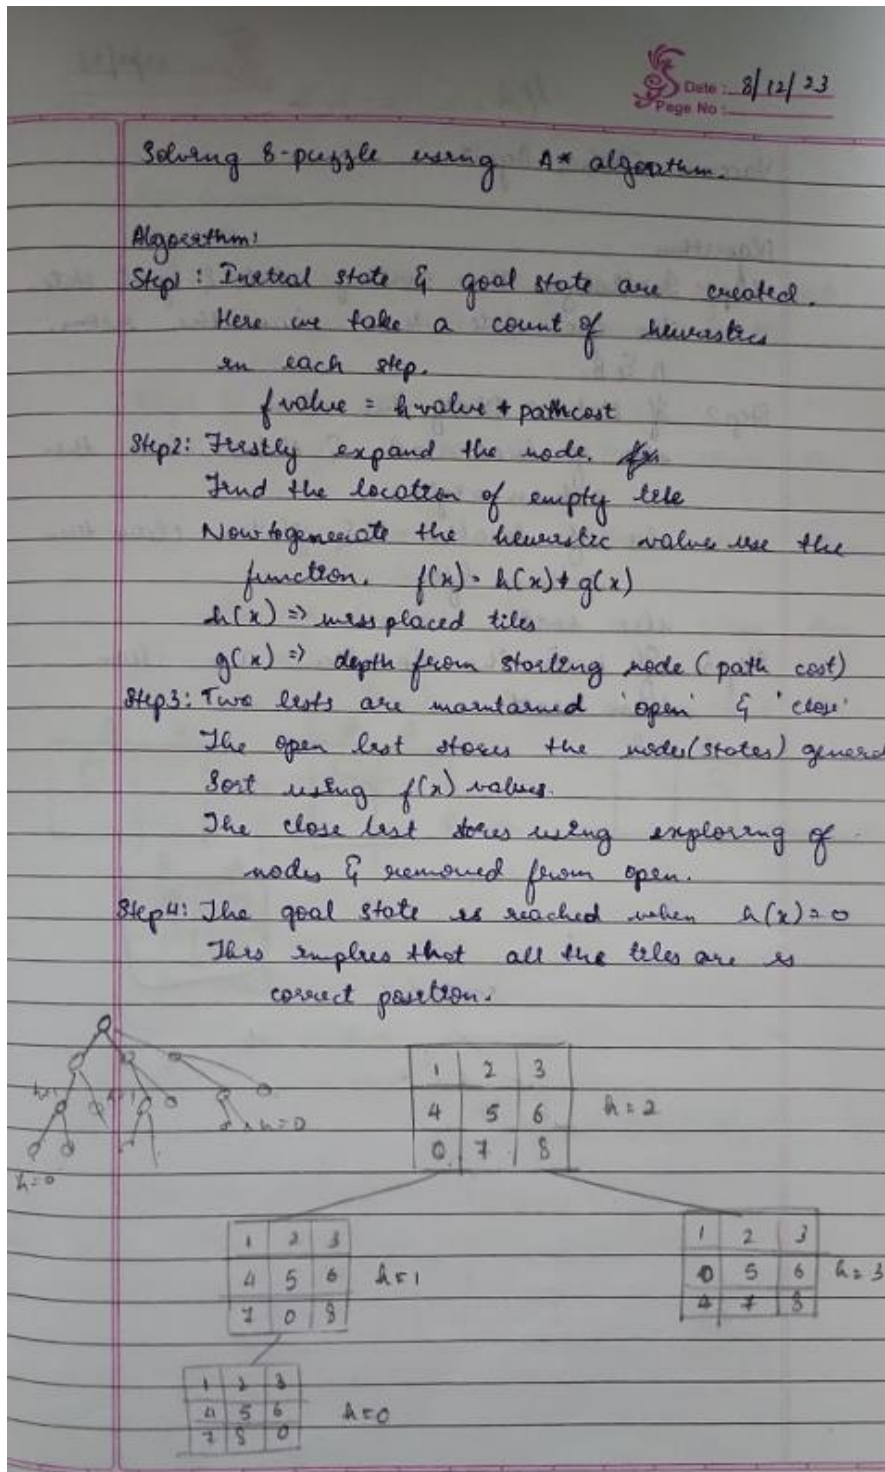 Date : 8/12/23
Page No :
Solving 8-puzzle using A* algorithm.
Algorithm:
Step1 : Initial state & goal state are created.
Here we take a count of heuristics
in each step.
f value = h value + pathcost
Step2: Firstly expand the node.
Find the location of empty tile
Now to generate the heuristic values use the
function. f(x) = h(x) + g(x)
h(x) => miss placed tiles
g(x) => depth from starting node (path cost)
Step3: Two lists are maintained 'open' & 'close'
The open list stores the nodes(states) generat
Sort using f(x) values.
The close list stores using exploring of
nodes & removed from open.
Step4: The goal state is reached when h(x)=0
This implies that all the tiles are is
correct position.
1 2 3
4 5 6 h = 2
0 7 8
h=1 h=1
h=0
h=0
1 2 3
4 5 6 h=1
7 0 8
1 2 3
0 5 6 h=3
4 7 8
1 2 3
4 5 6 h=0
7 8 0